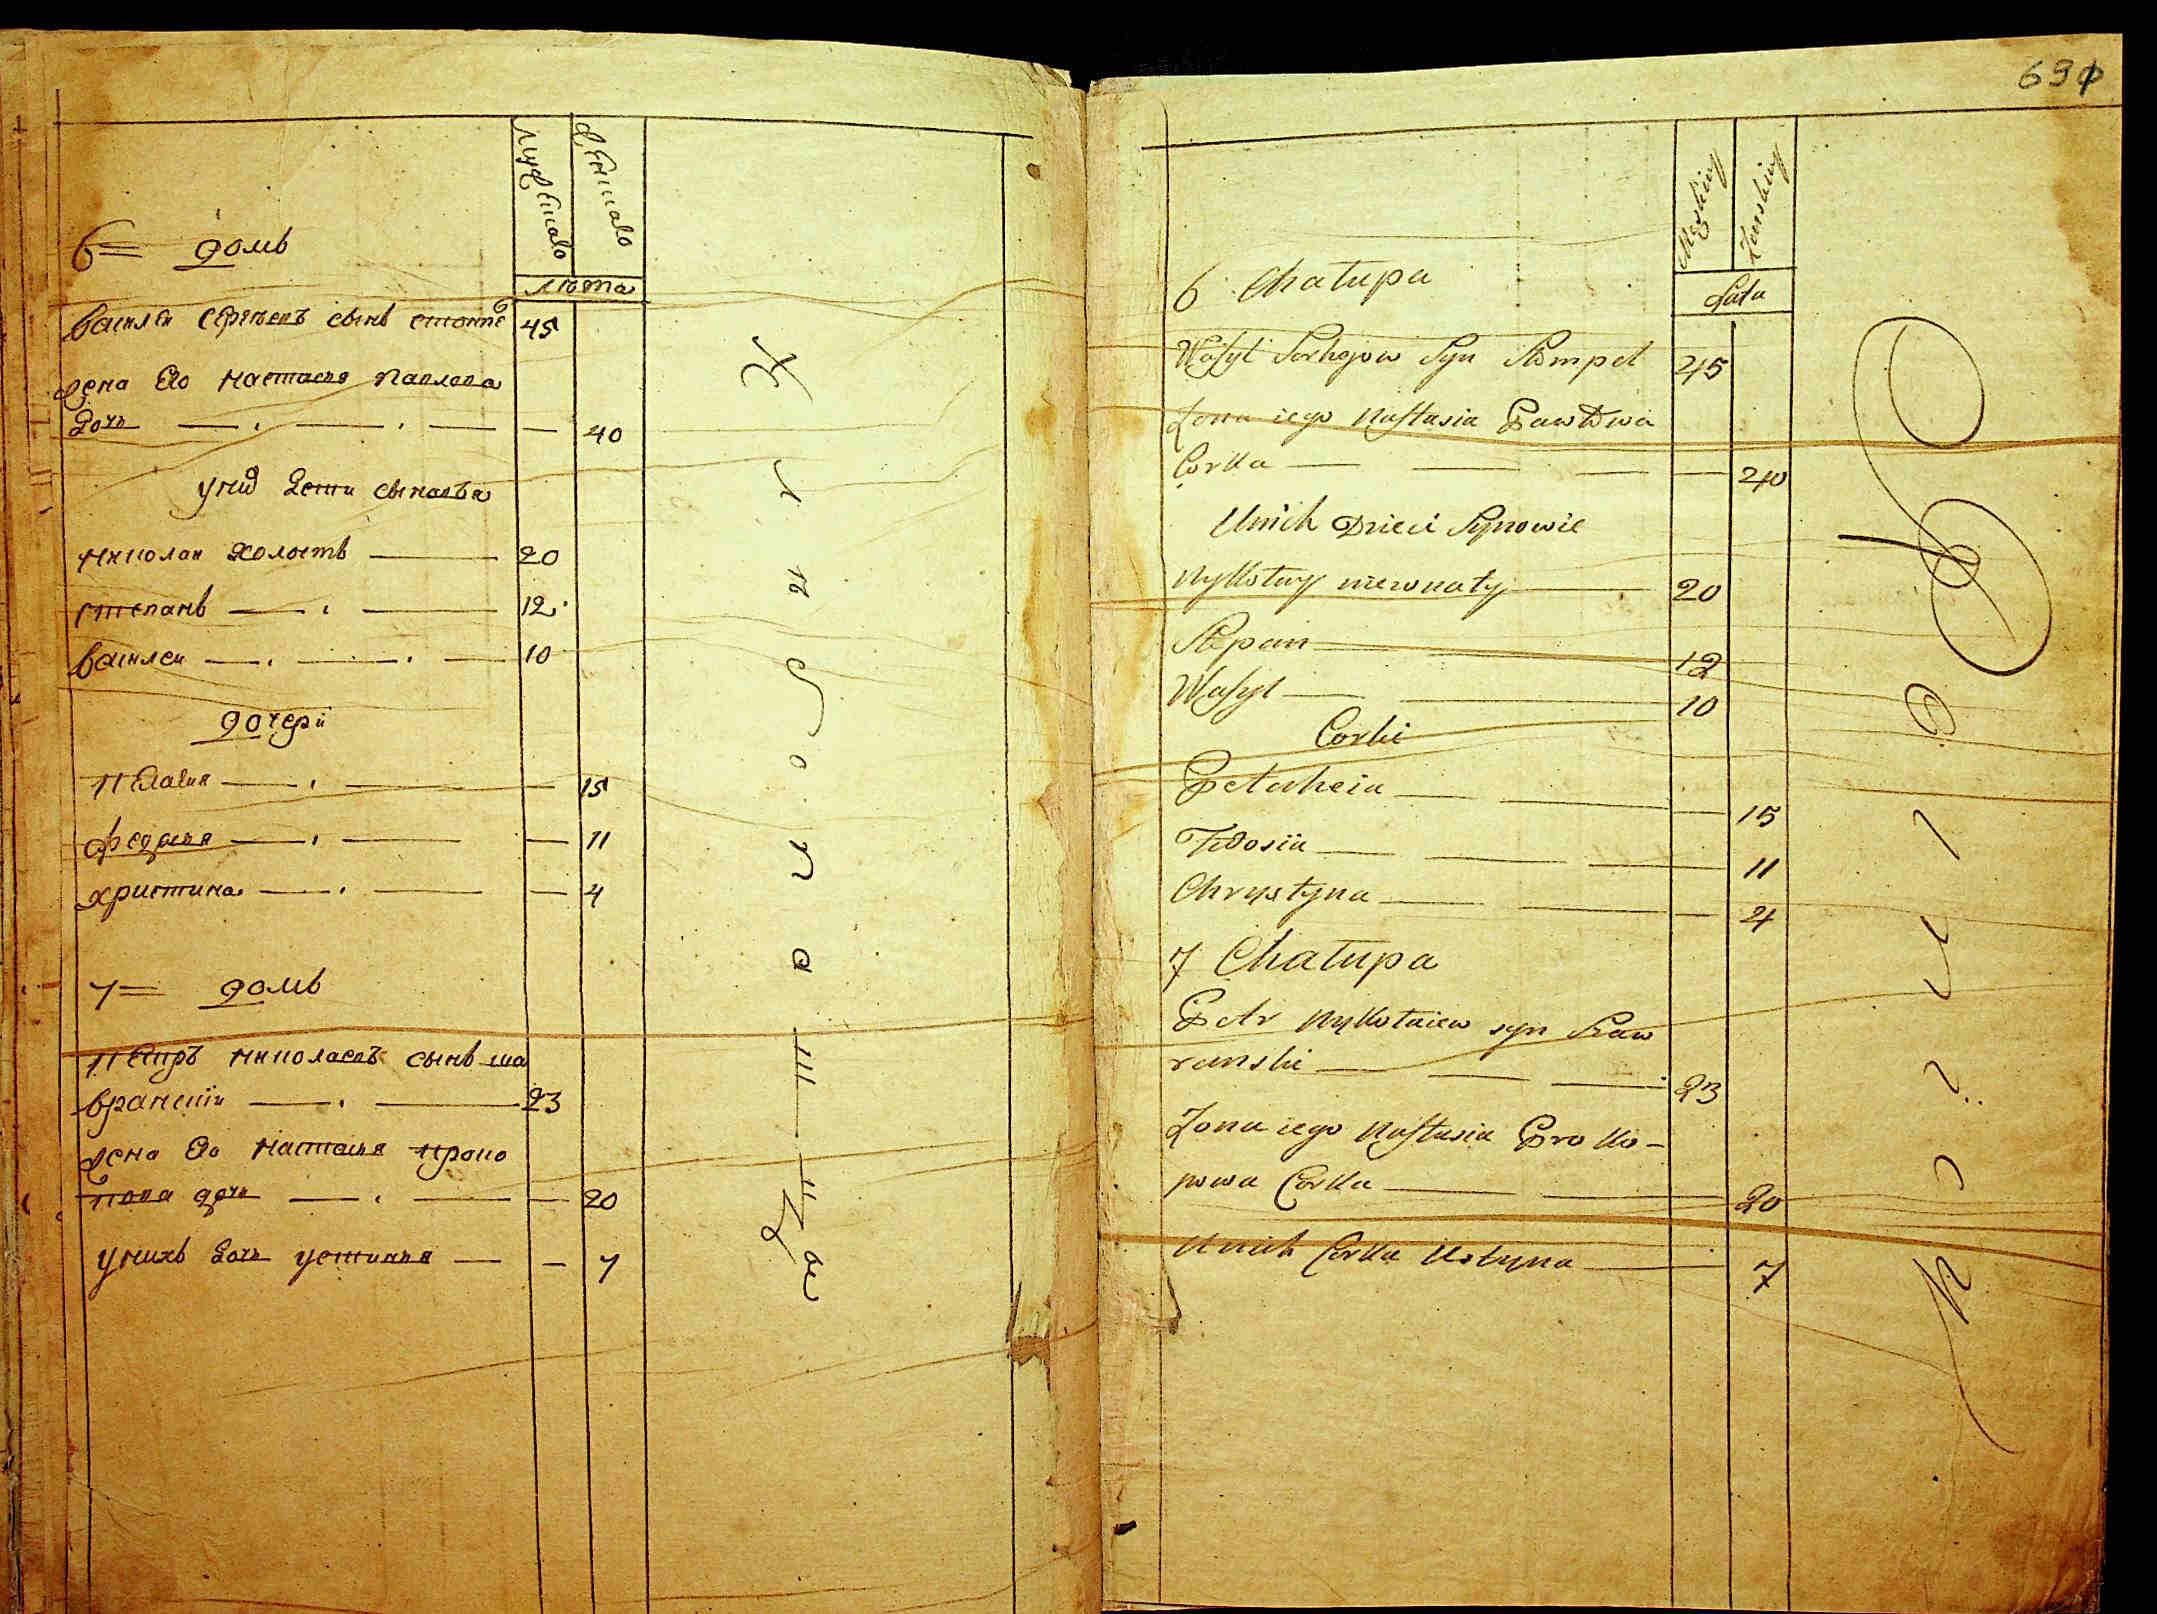 Мужеска
Женска
6 = домъ
лета
Василеи Сергеевъ сынъ
45
жена Его Настасья Павлова
Дочь
40
у них Дети сыновья
николаи холостъ
20
степанъ
12
василеи
10
дочери
пелагия
15
федосья
11
христина
4
7 = домъ
петръ николаевъ сынъ ша
вранскии
23
жена Его Настасья проко
пова дочь
20
у нихъ Дочь устинья
7
Męskiey
Zenskiey
6 Chałupa
Lata
Wasyl Serhejow Syn Stompel
45
Zona iego Nastasia Pawłowa
Corka
40
U nich Dzieci Synowie
Nykołay niezonaty
20
Stepan
12
Wasyl
10
Corki
Pełaheia
15
Fedosiia
11
Chrystyna
4
7 Chałupa
Petr Nykołaiew syn Szaw
ranski
23
Zona iego Nastasia Proko-
powa Corka
20
U nich Corka Ustyna
7